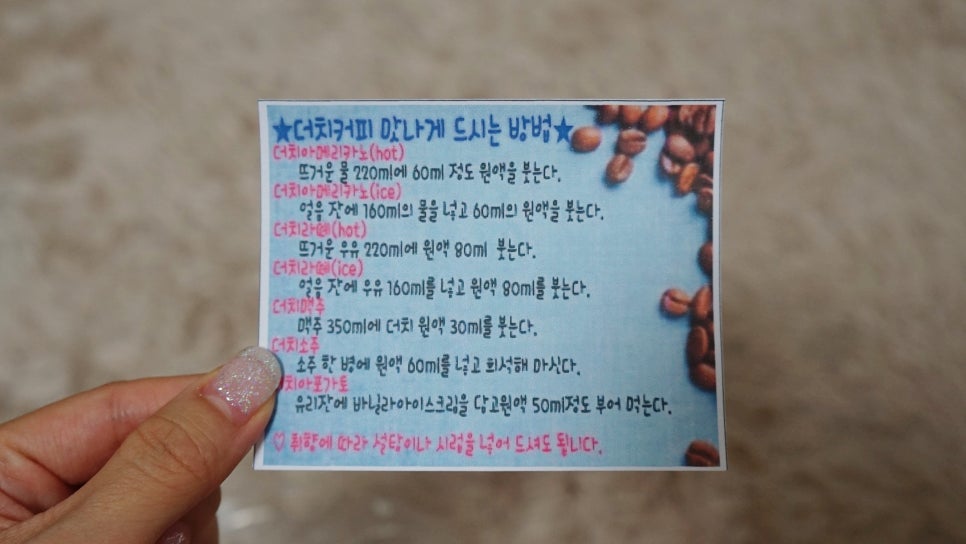 ★더치커피 맛나게 드시는 방법★
더치아메리카노(hot)
뜨거운 물 220ml에 60ml 정도 원액을 붓는다.
더치아메리카노(ice)
얼음 잔에 160ml의 물을 넣고 60ml의 원액을 붓는다.
더치라떼(hot)
뜨거운 우유 220ml에 원액 80ml 붓는다.
더치라떼(ice)
얼음 잔에 우유 160ml를 넣고 원액 80ml를 붓는다.
더치맥주
맥주 350ml에 더치 원액 30ml를 붓는다.
더치소주
소주 한 병에 원액 60ml를 넣고 희석해 마신다.
치아포가토
유리잔에 바닐라아이스크림을 담고원액 50ml정도 부어 먹는다.
♡ 취향에 따라 설탕이나 시럽을 넣어 드셔도 됩니다.